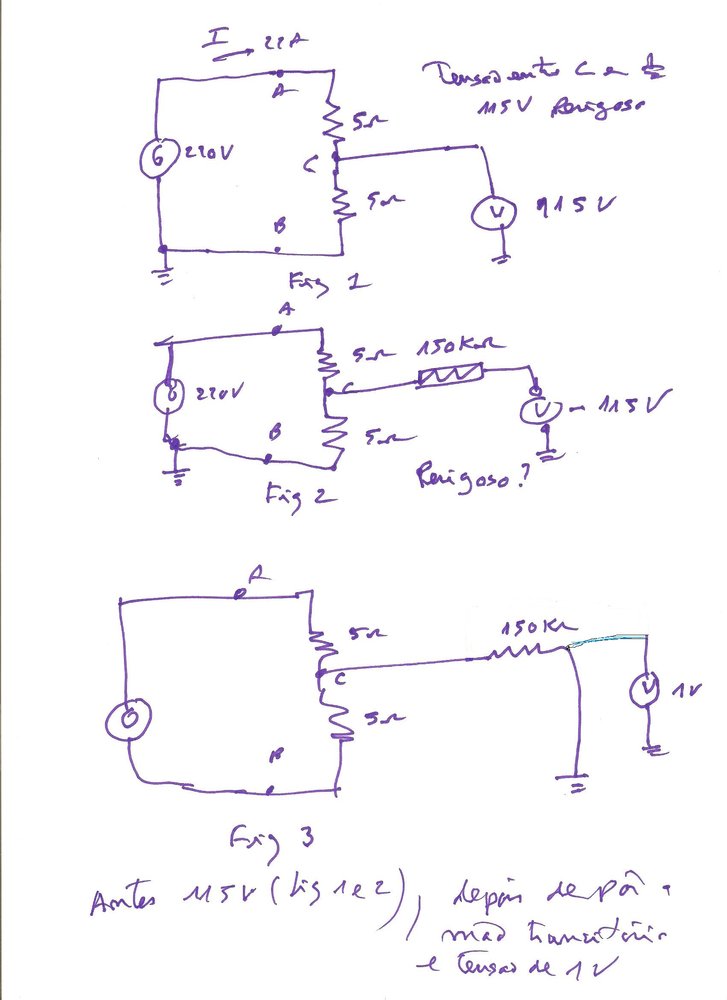 I → 22A
A
Tensão entre C e ⏚
115V Perigoso
5Ω
G 220V
C
5Ω
V 115V
B
Fig 1
A
5Ω 150KΩ
G 220V
C
V - 115V
B
5Ω
Fig 2
Perigoso?
A
5Ω
150KΩ
C
G
5Ω
V 1V
B
Fig 3
Antes 115V (fig 1 e 2), depois de pôr a
mão transitória
e tensão de 1V